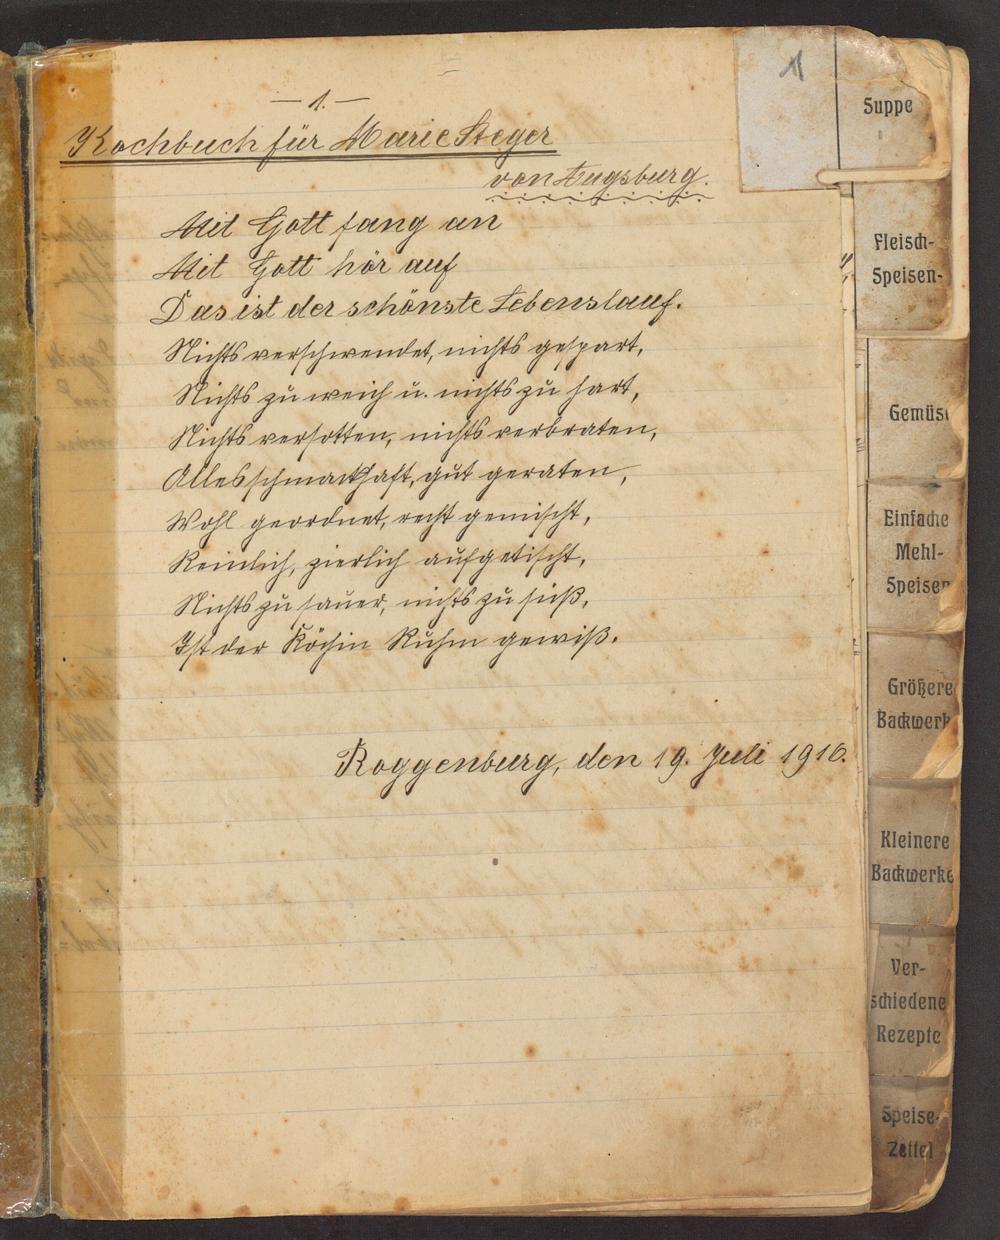 1
— 1. —
Kochbuch für Marie Steger
von Augsburg.
Mit Gott fang an
Mit Gott hör auf
Das ist der schönste Lebenslauf.
Nichts verschwendet, nichts gespart,
Nichts zu weich u. nichts zu hart,
Nichts versotten, nichts verbraten,
Alles schmackhaft, gut geraten,
Wohl geordnet, recht gemischt,
Reinlich, zierlich aufgetischt,
Nichts zu sauer, nichts zu süß,
Ist der Köchin Ruhm gewiß.
Roggenburg, den 19. Juli 1910.
Suppe
Fleisch-
Speisen-
Gemüse
Einfache
Mehl-
Speisen
Größere
Backwerk
Kleinere
Backwerke
Ver-
schiedene
Rezepte
Speise-
Zettel